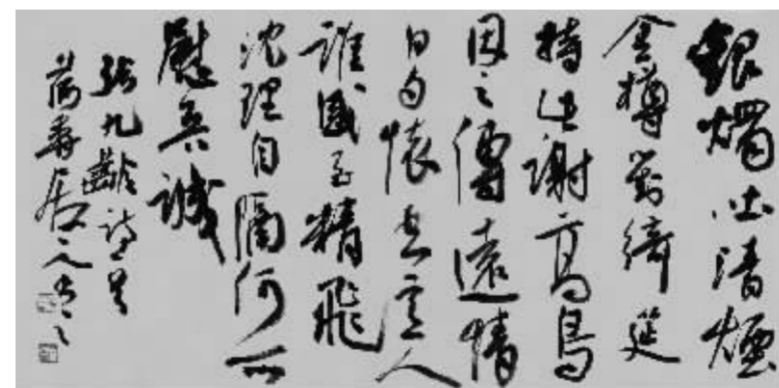 銀燭吐清煙
金樽對綺筵
持此謝高鳥
因之傳遠情
日夕懷空意人
誰感至精飛
沈理自隔何所
慰吾誠
張九齡詩